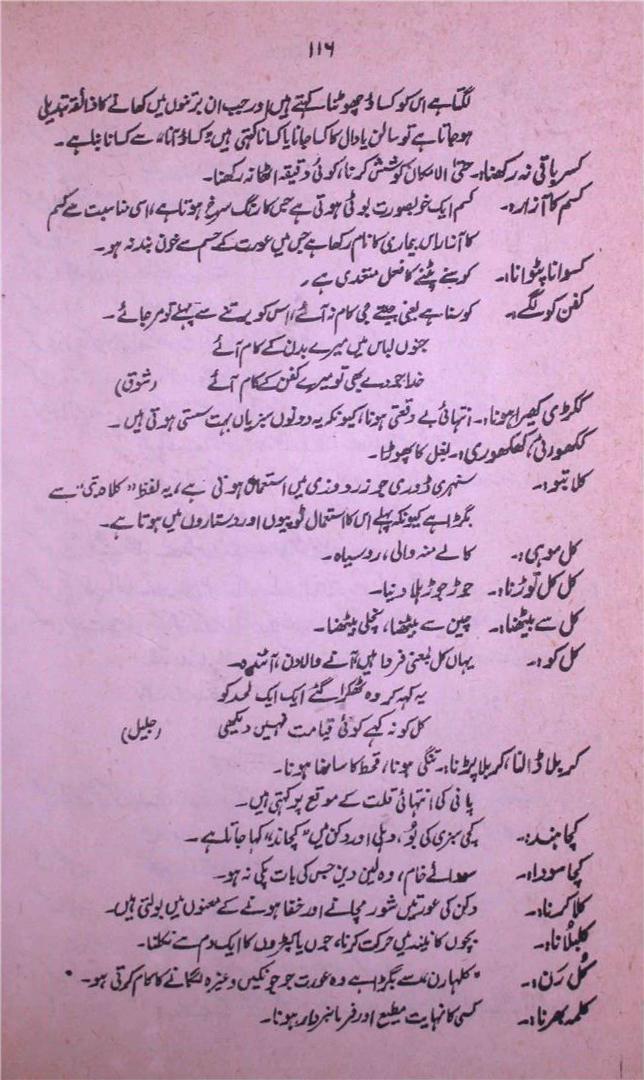 ۱۱۶
لگتا ہے اس کو کساڈ چھوٹنا کہتے ہیں اور جب ان برتنوں میں کھانے کا ذائقہ تبدیل
ہو جاتا ہے تو سالن یا دال کا کسا جانا یا کسانا کہتی ہیں، کساڈ آنا، سے کسانا بنا ہے۔
کسر باقی نہ رکھنا:۔ حتیٰ الامکان کوشش کرنا، کوئی دقیقہ اٹھا نہ رکھنا۔
کسم کا آزار:۔ کسم ایک خوبصورت بوٹی ہوتی ہے جس کا رنگ سرخ ہوتا ہے، اسی مناسبت سے کسم
کا آزار اس بیماری کا نام رکھا ہے جس میں عورت کے جسم سے خون بند نہ ہو۔
کسوانا پٹوانا:۔ کوسنے پٹنے کا فعل متعدی ہے۔
کفن کو لگے:۔ کوسنا ہے یعنی جیتے جی کام نہ آئے، اس کو برتنے سے پہلے تو مر جائے۔
جنوں لباس میں میرے بدن کے کام آئے
خدا جو دے بھی تو میرے کفن کے کام آئے (شوق)
ککڑی کھیرا ہونا:۔ انتہائی بے وقعتی ہونا، کیونکہ یہ دونوں سبزیاں بہت سستی ہوتی ہیں۔
ککھورٹی، کھکھوری:۔ بغل کا پھوڑا۔
کلابتو:۔ سنہری ڈوری جو زردوزی میں استعمال ہوتی ہے، یہ لفظ "کلاہتی" سے
بگڑا ہے کیونکہ پہلے اس کا استعمال ٹوپیوں اور دستاروں میں ہوتا ہے۔
کل موہی:۔ کالے منہ والی، رو سیاہ۔
کل کل توڑنا:۔ جوڑ جوڑ ہلا دینا۔
کل سے بیٹھنا:۔ چین سے بیٹھنا، نچلی بیٹھنا۔
کل کو:۔ یہاں کل یعنی فردا ہیں، آنے والا دن، آئندہ۔
یہ کہہ کر وہ ٹھکرا گئے ایک ایک لحد کو
کل کو نہ کہے کوئی قیامت نہیں دیکھی (جلیل)
کربلا ڈالنا، کربلا پڑنا:۔ تنگی ہونا، قحط کا سامنا ہونا۔
پانی کی انتہائی قلت کے موقع پر کہتی ہیں۔
کچاہند:۔ کچی سبزی کی بُو، دہلی اور دکن میں "کچاند" کہا جاتا ہے۔
کچا سودا:۔ سودائے خام، وہ لین دین جس کی بات پکی نہ ہو۔
کلا کرنا:۔ دکن کی عورتیں شور مچانے اور خفا ہونے کے معنوں میں بولتی ہیں۔
کلبلانا:۔ بچوں کا نیند میں حرکت کرنا، جوں یا کیڑوں کا ایک دم سے نکلنا۔
کُل رَن:۔ "کلہارن" سے بگڑا ہے وہ عورت جو جونکیں وغیرہ لگانے کا کام کرتی ہو۔
کلمہ بھرنا:۔ کسی کا نہایت مطیع اور فرمانبردار ہونا۔